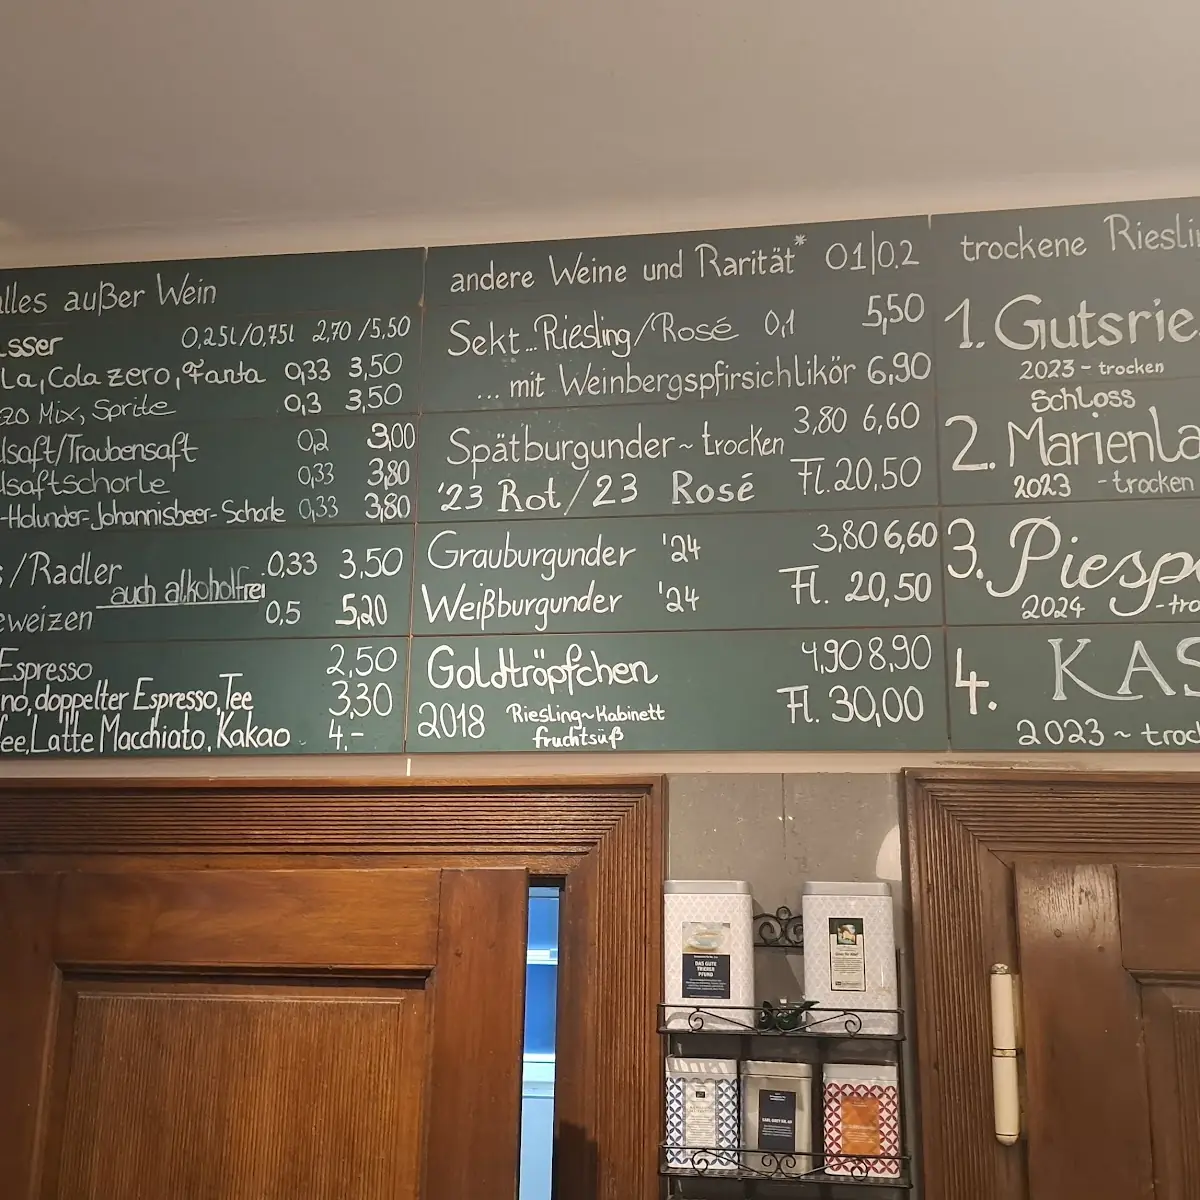 alles außer Wein
sser 0,25l/0,75l 2,70 /5,50
La, Cola zero, Fanta 0,33 3,50
zo Mix, Sprite 0,3 3,50
lsaft/Traubensaft 0,2 3,00
lsaftschorle 0,33 3,80
-Holunder-Johannisbeer-Schorle 0,33 3,80
/Radler 0,33 3,50
auch alkoholfrei
eweizen 0,5 5,20
Espresso 2,50
no, doppelter Espresso, Tee 3,30
ee, Latte Macchiato, Kakao 4,-
andere Weine und Rarität* 01/0.2
Sekt... Riesling/Rosé 0,1 5,50
... mit Weinbergspfirsichlikör 6,90
Spätburgunder ~ trocken 3,80 6,60
'23 Rot/23 Rosé Fl. 20,50
Grauburgunder '24 3,80 6,60
Weißburgunder '24 Fl. 20,50
Goldtröpfchen 4,90 8,90
2018 Riesling~Kabinett Fl. 30,00
fruchtsüß
trockene Riesli
1. Gutsrie
2023 - trocken
Schloss
2. Marienla
2023 - trocken
3. Piespo
2024 - tro
4. KAS
2023 ~ troc
DAS GUTE
TRIERER
PFUND